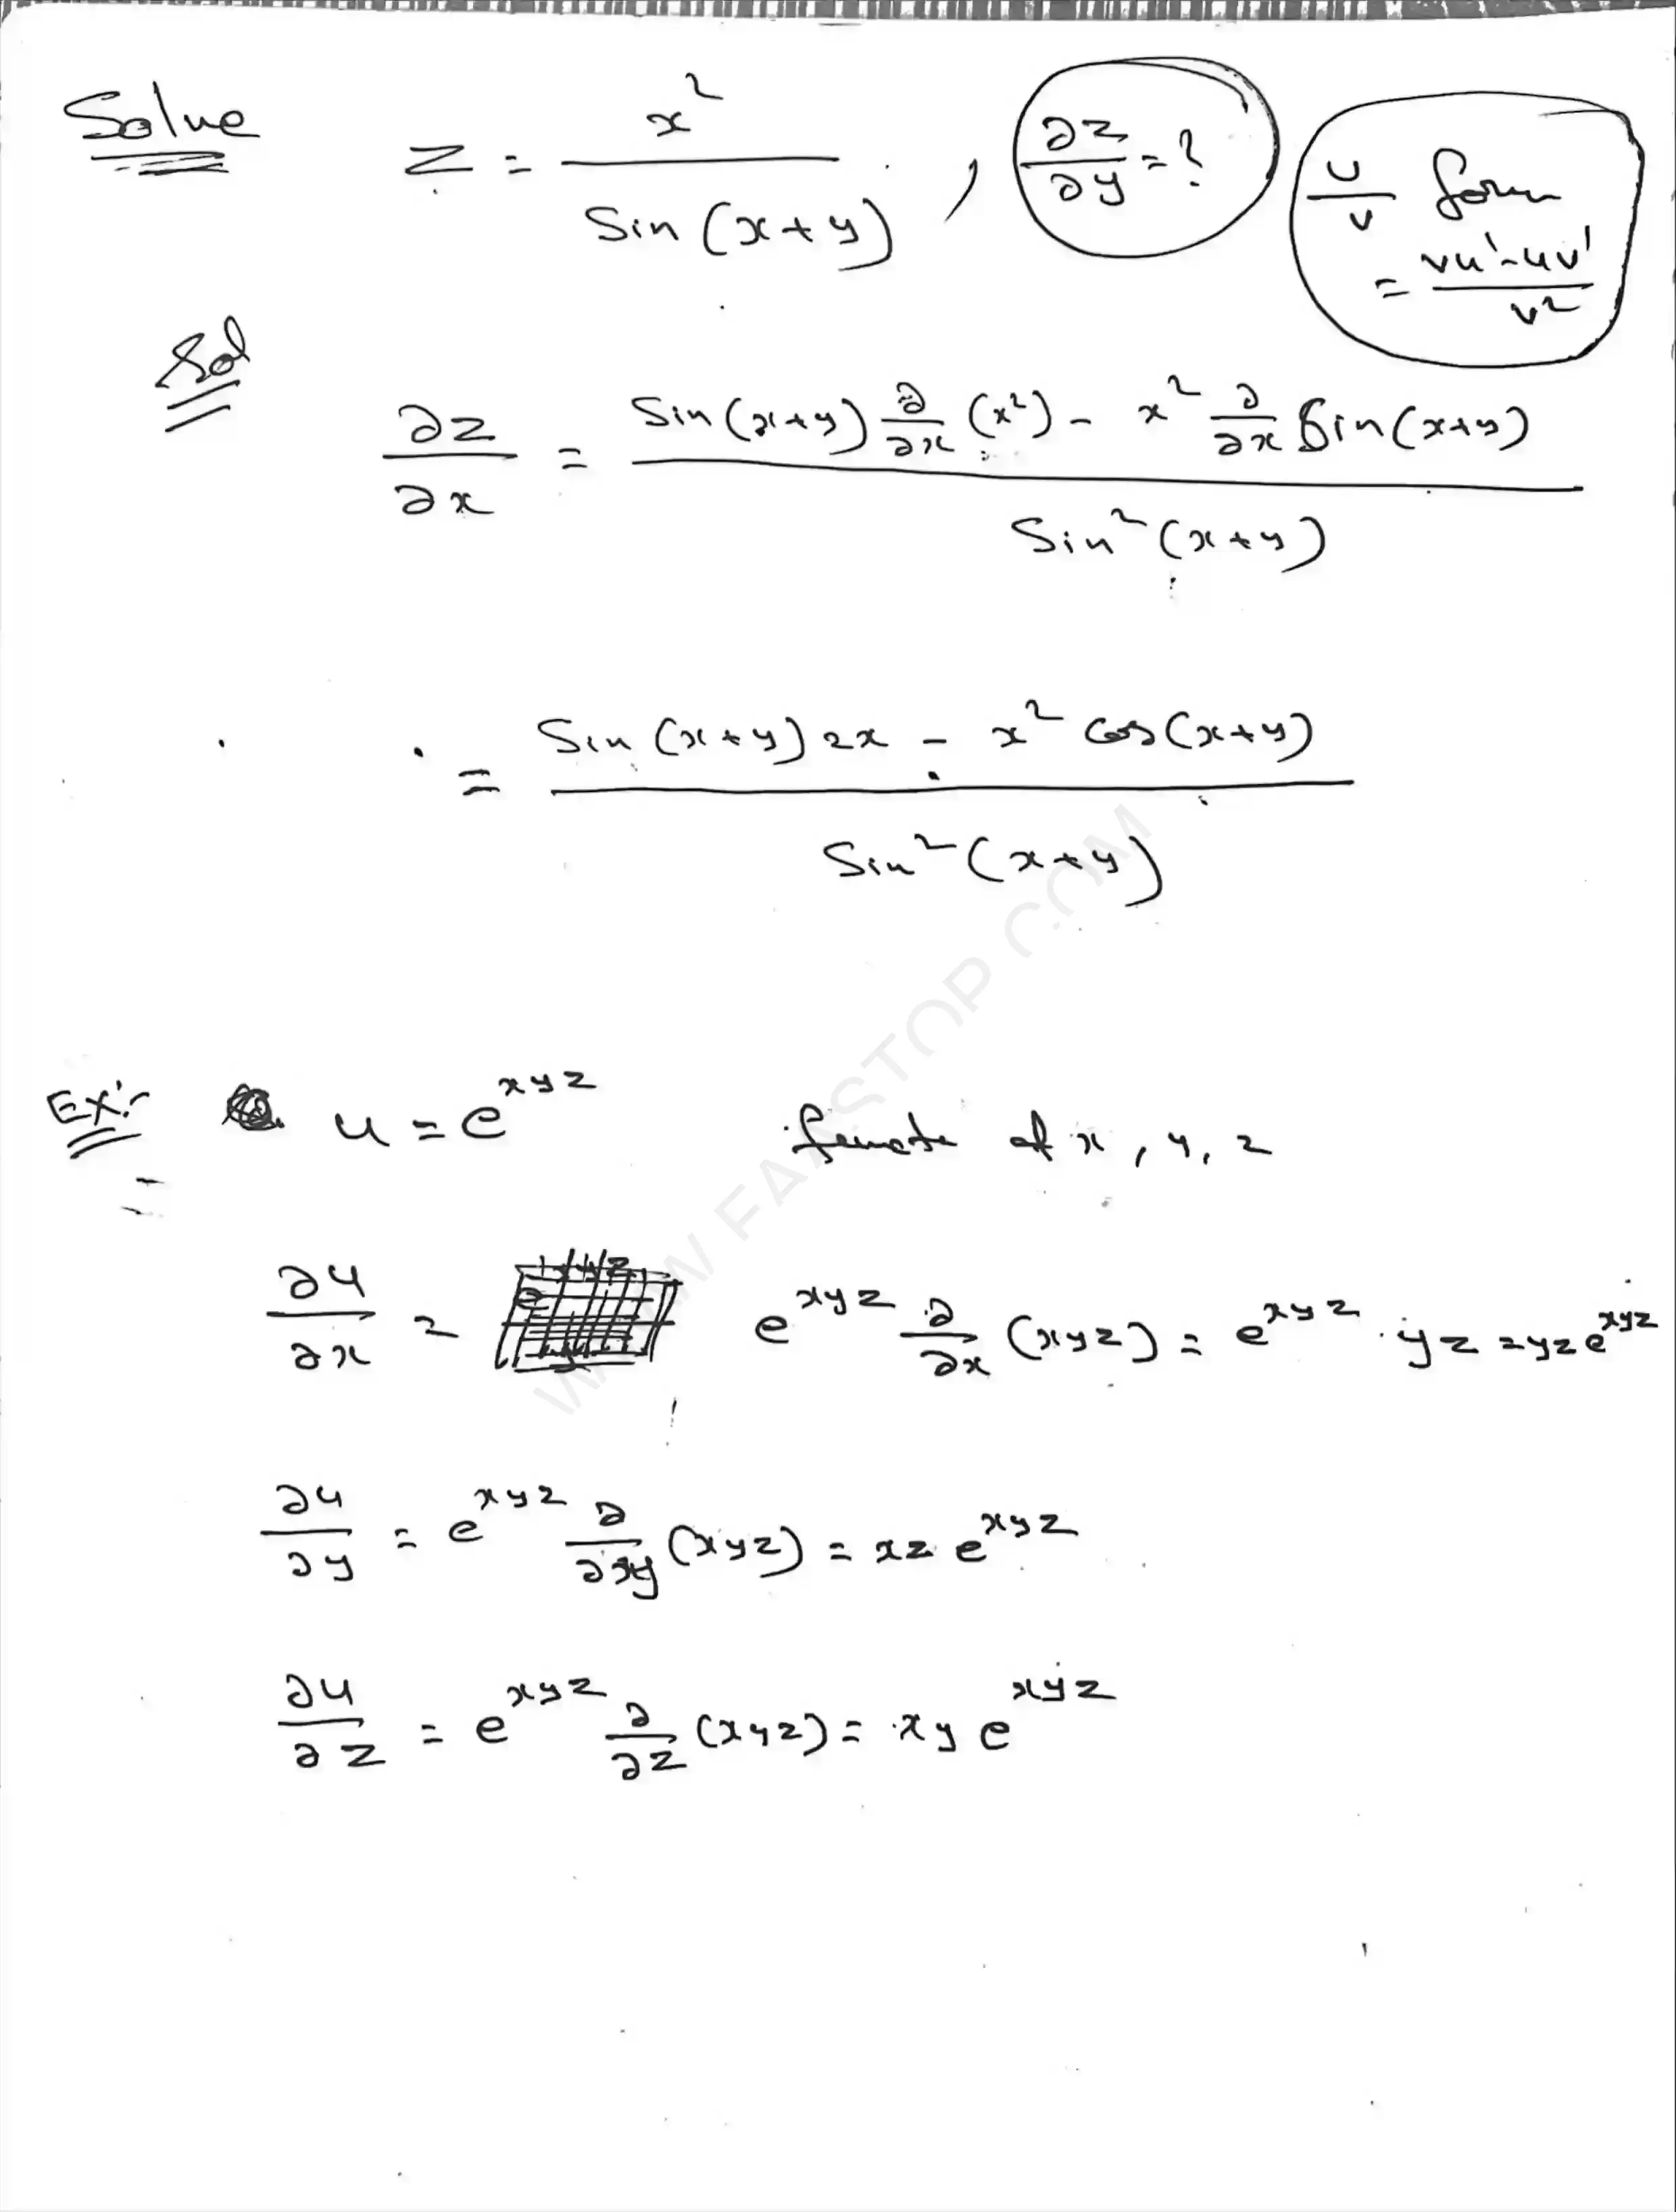 Solve z = x² / Sin(x+y) , ∂z/∂y = ?
u/v form
= vu' - uv' / v²
Sol
∂z/∂x = Sin(x+y) ∂/∂x (x²) - x² ∂/∂x Sin(x+y) / Sin²(x+y)
= Sin(x+y) 2x - x² Cos(x+y) / Sin²(x+y)
Ex:- u = e^xyz of x, y, z
∂u/∂x = e^xyz ∂/∂x (xyz) = e^xyz · yz = yz e^xyz
∂u/∂y = e^xyz ∂/∂y (xyz) = xz e^xyz
∂u/∂z = e^xyz ∂/∂z (xyz) = xy e^xyz